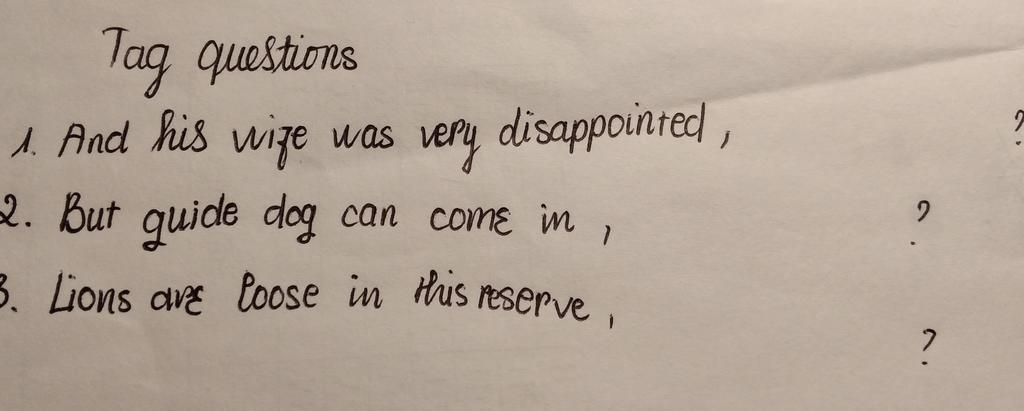 Tag questions
1. And his wife was very disappointed, ?
2. But guide dog can come in, ?
3. Lions are loose in this reserve, ?